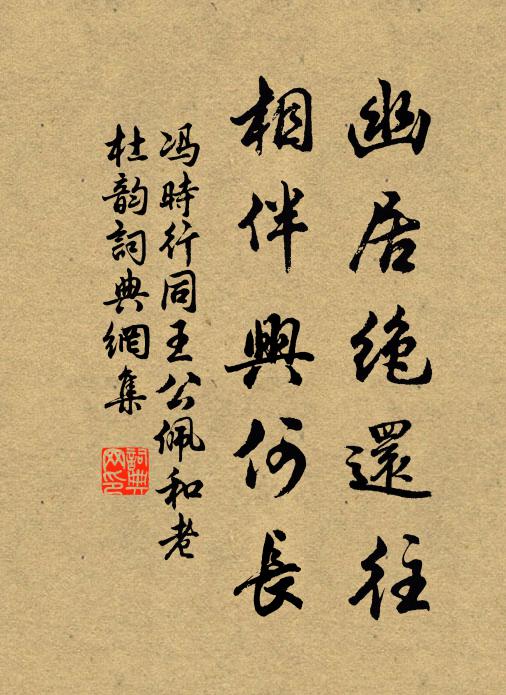 幽居絶還往
相伴興何長
冯時行同王公佩和老
杜韵詞典網集
詞典
网印